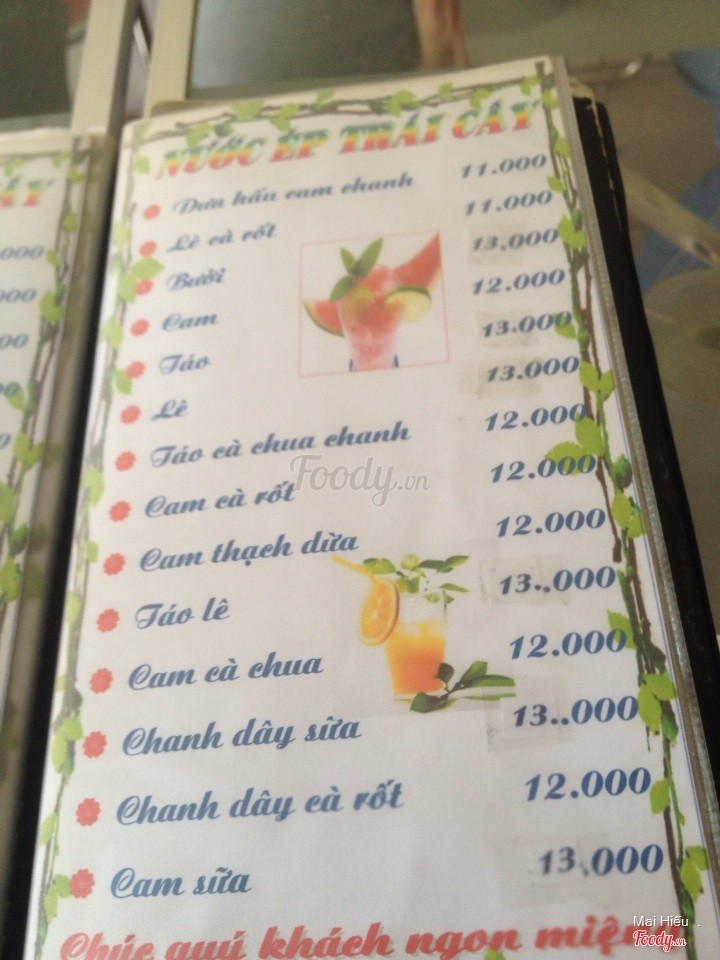 NƯỚC ÉP TRÁI CÂY
Dưa hấu cam chanh 11.000
Lê cà rốt 11.000
Bưởi 13,000
Cam 12.000
Táo 13.000
Lê 13.000
Táo cà chua chanh 12.000
Cam cà rốt 12.000
Cam thạch dừa 12.000
Táo lê 13..000
Cam cà chua 12.000
Chanh dây sữa 13..000
Chanh dây cà rốt 12.000
Cam sữa 13,000
Chúc quý khách ngon miệng
Foody.vn
Mai Hiếu
Foody.vn